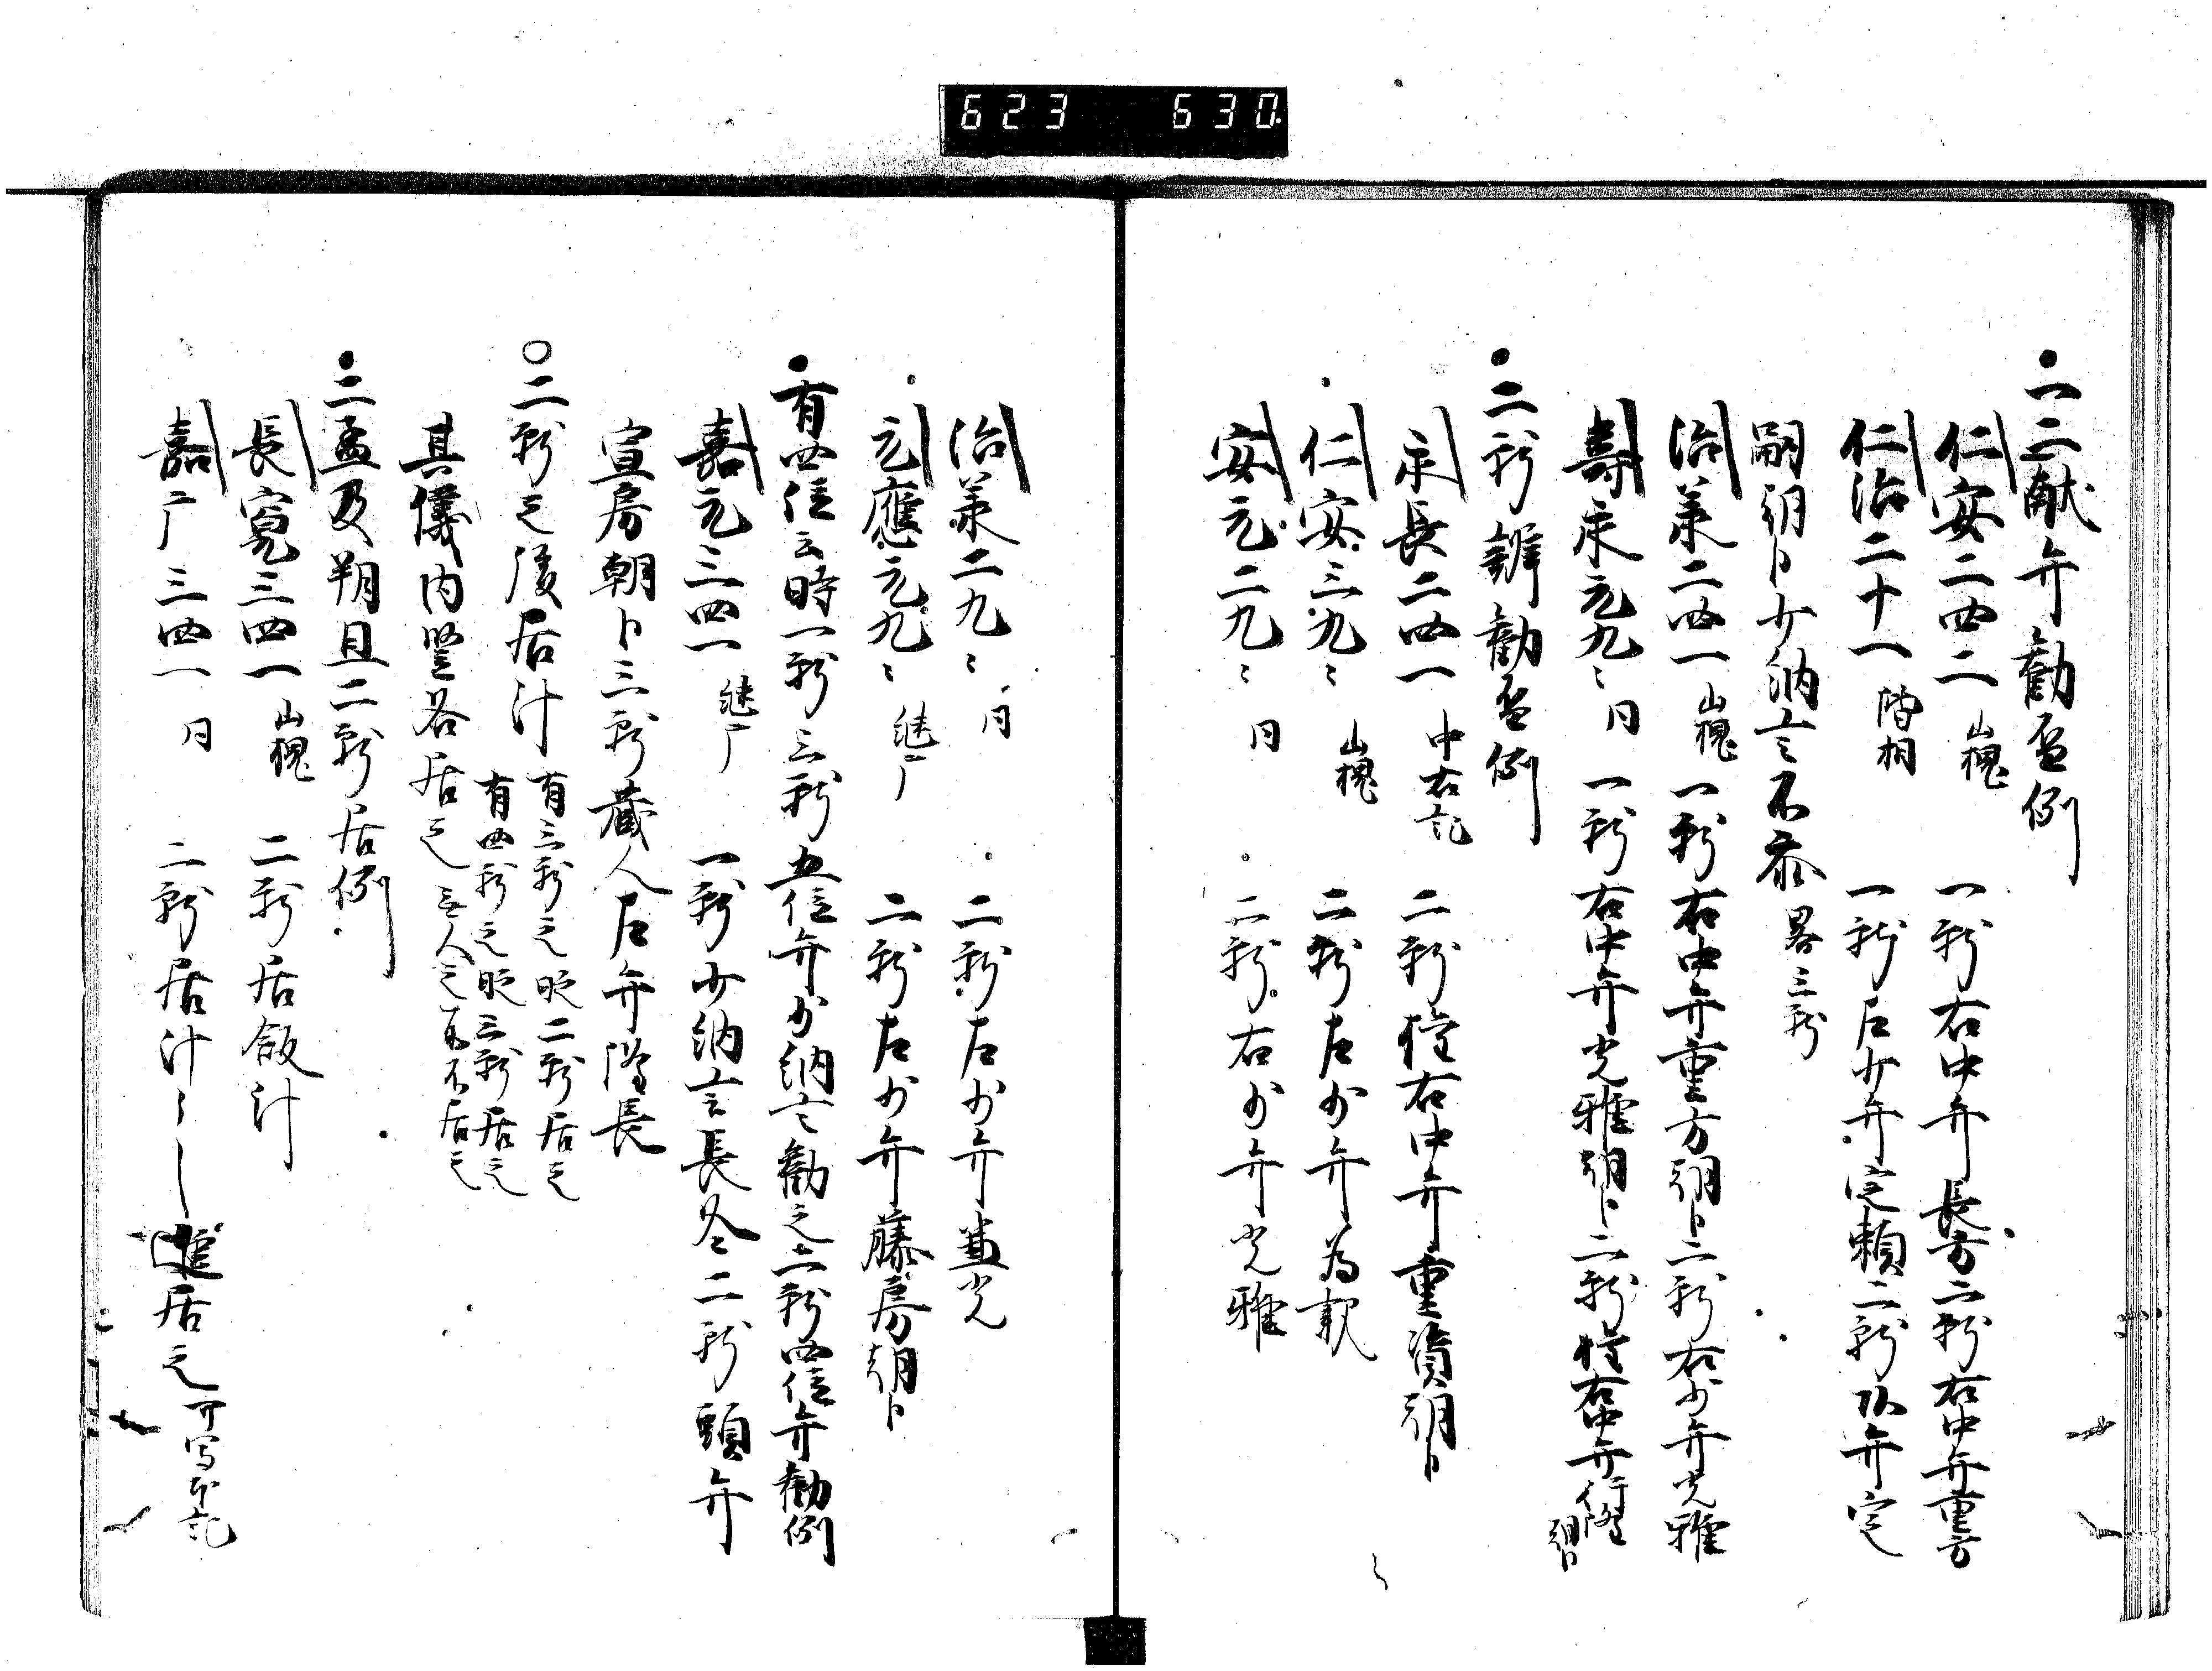 623 630
一二献弁勧盃例
仁安二四二 山槐 一献右中弁長方二献右中弁重方
仁治二十一 階相 一献左少弁定頼二献以弁定
嗣朝臣少納言不参 畧三献
治承二四一 山槐 一献右中弁重方朝臣二献右少弁光雅
寿永元九〻 同 一献右中弁光雅朝臣二献権右中弁行隆朝臣
二献辨勧盃例
永長二四一 中右記 二献権右中弁重資朝臣
仁安三九〻 山槐 二献左少弁為親
安元二九〻 同 二献右少弁光雅
治承二九〻 同 二献左少弁兼光
元應元九〻 継广 二献左少弁藤房朝臣
有四位之時一献三献五位弁少納言勧之二献四位弁勧例
嘉元三四一 継广 一献少納言長冬二献頭弁
宣房朝臣三献蔵人左弁隆長
二献之後居汁 有三献之時二献居之
有四献之時三献居之
其儀内竪各居之
二孟及朔旦二献居例
長寛三四一 山槐 二献居飯汁
嘉广三四一 同 二献居汁
居之